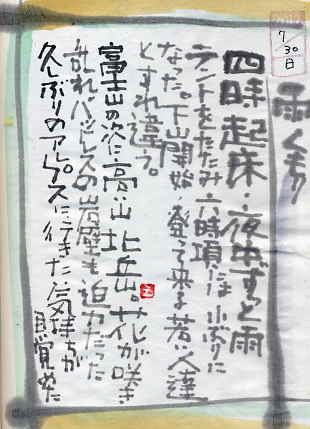 7/30
日
雨くもり
四時起床・夜中ずっと雨
テントをたたみ六時頃には小ぶりに
なった。下山開始・登って来る若い人達
とすれ違う。
富士山の次に高い山 北岳。花が咲き
乱れバットレスの岩壁も迫力だった
久しぶりのアルプスに行きた気持ちが
目覚めた